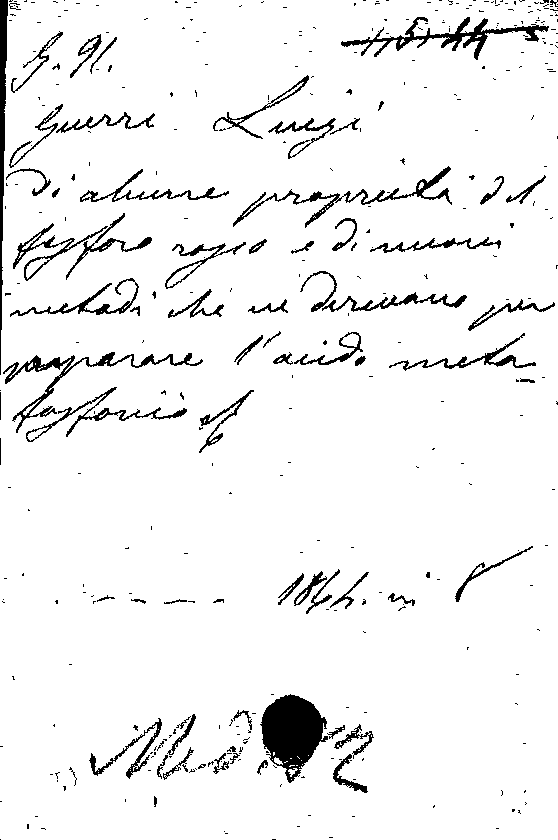 G. N.
Guerri Luigi
Di alcune proprietà del
fosforo rosso e di nuovi
metodi che ne derivano per
preparare l'acido meta-
fosforico
1864. in 8
Med.